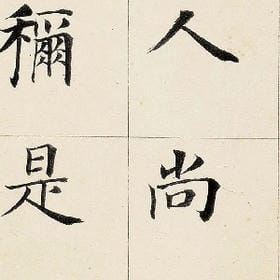 人尚
稱是